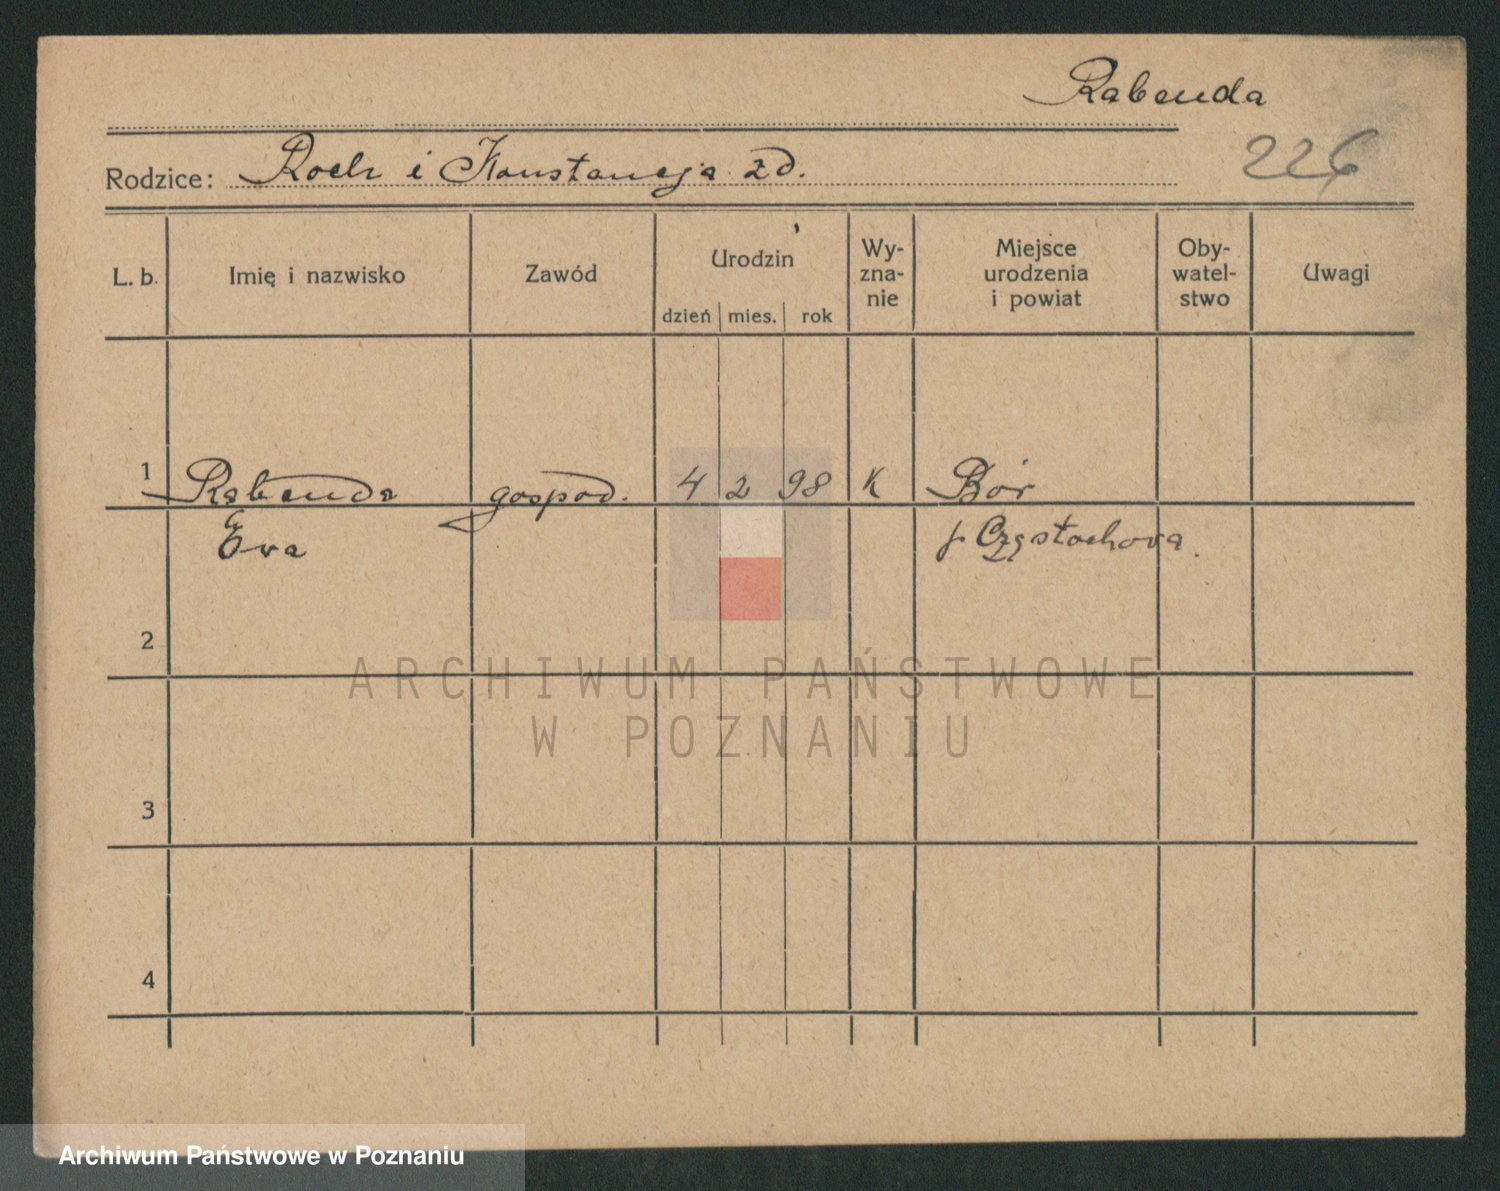 Rabenda
Rodzice: Roch i Konstancja zd.
226
L. b.
Imię i nazwisko
Zawód
Urodzin
dzień mies. rok
Wy-
zna-
nie
Miejsce
urodzenia
i powiat
Oby-
watel-
stwo
Uwagi
1 Rabenda gospod. 4 2 98 K Bór
Eva p. Częstochova.
2
3
4
ARCHIWUM PAŃSTWOWE
W POZNANIU
Archiwum Państwowe w Poznaniu